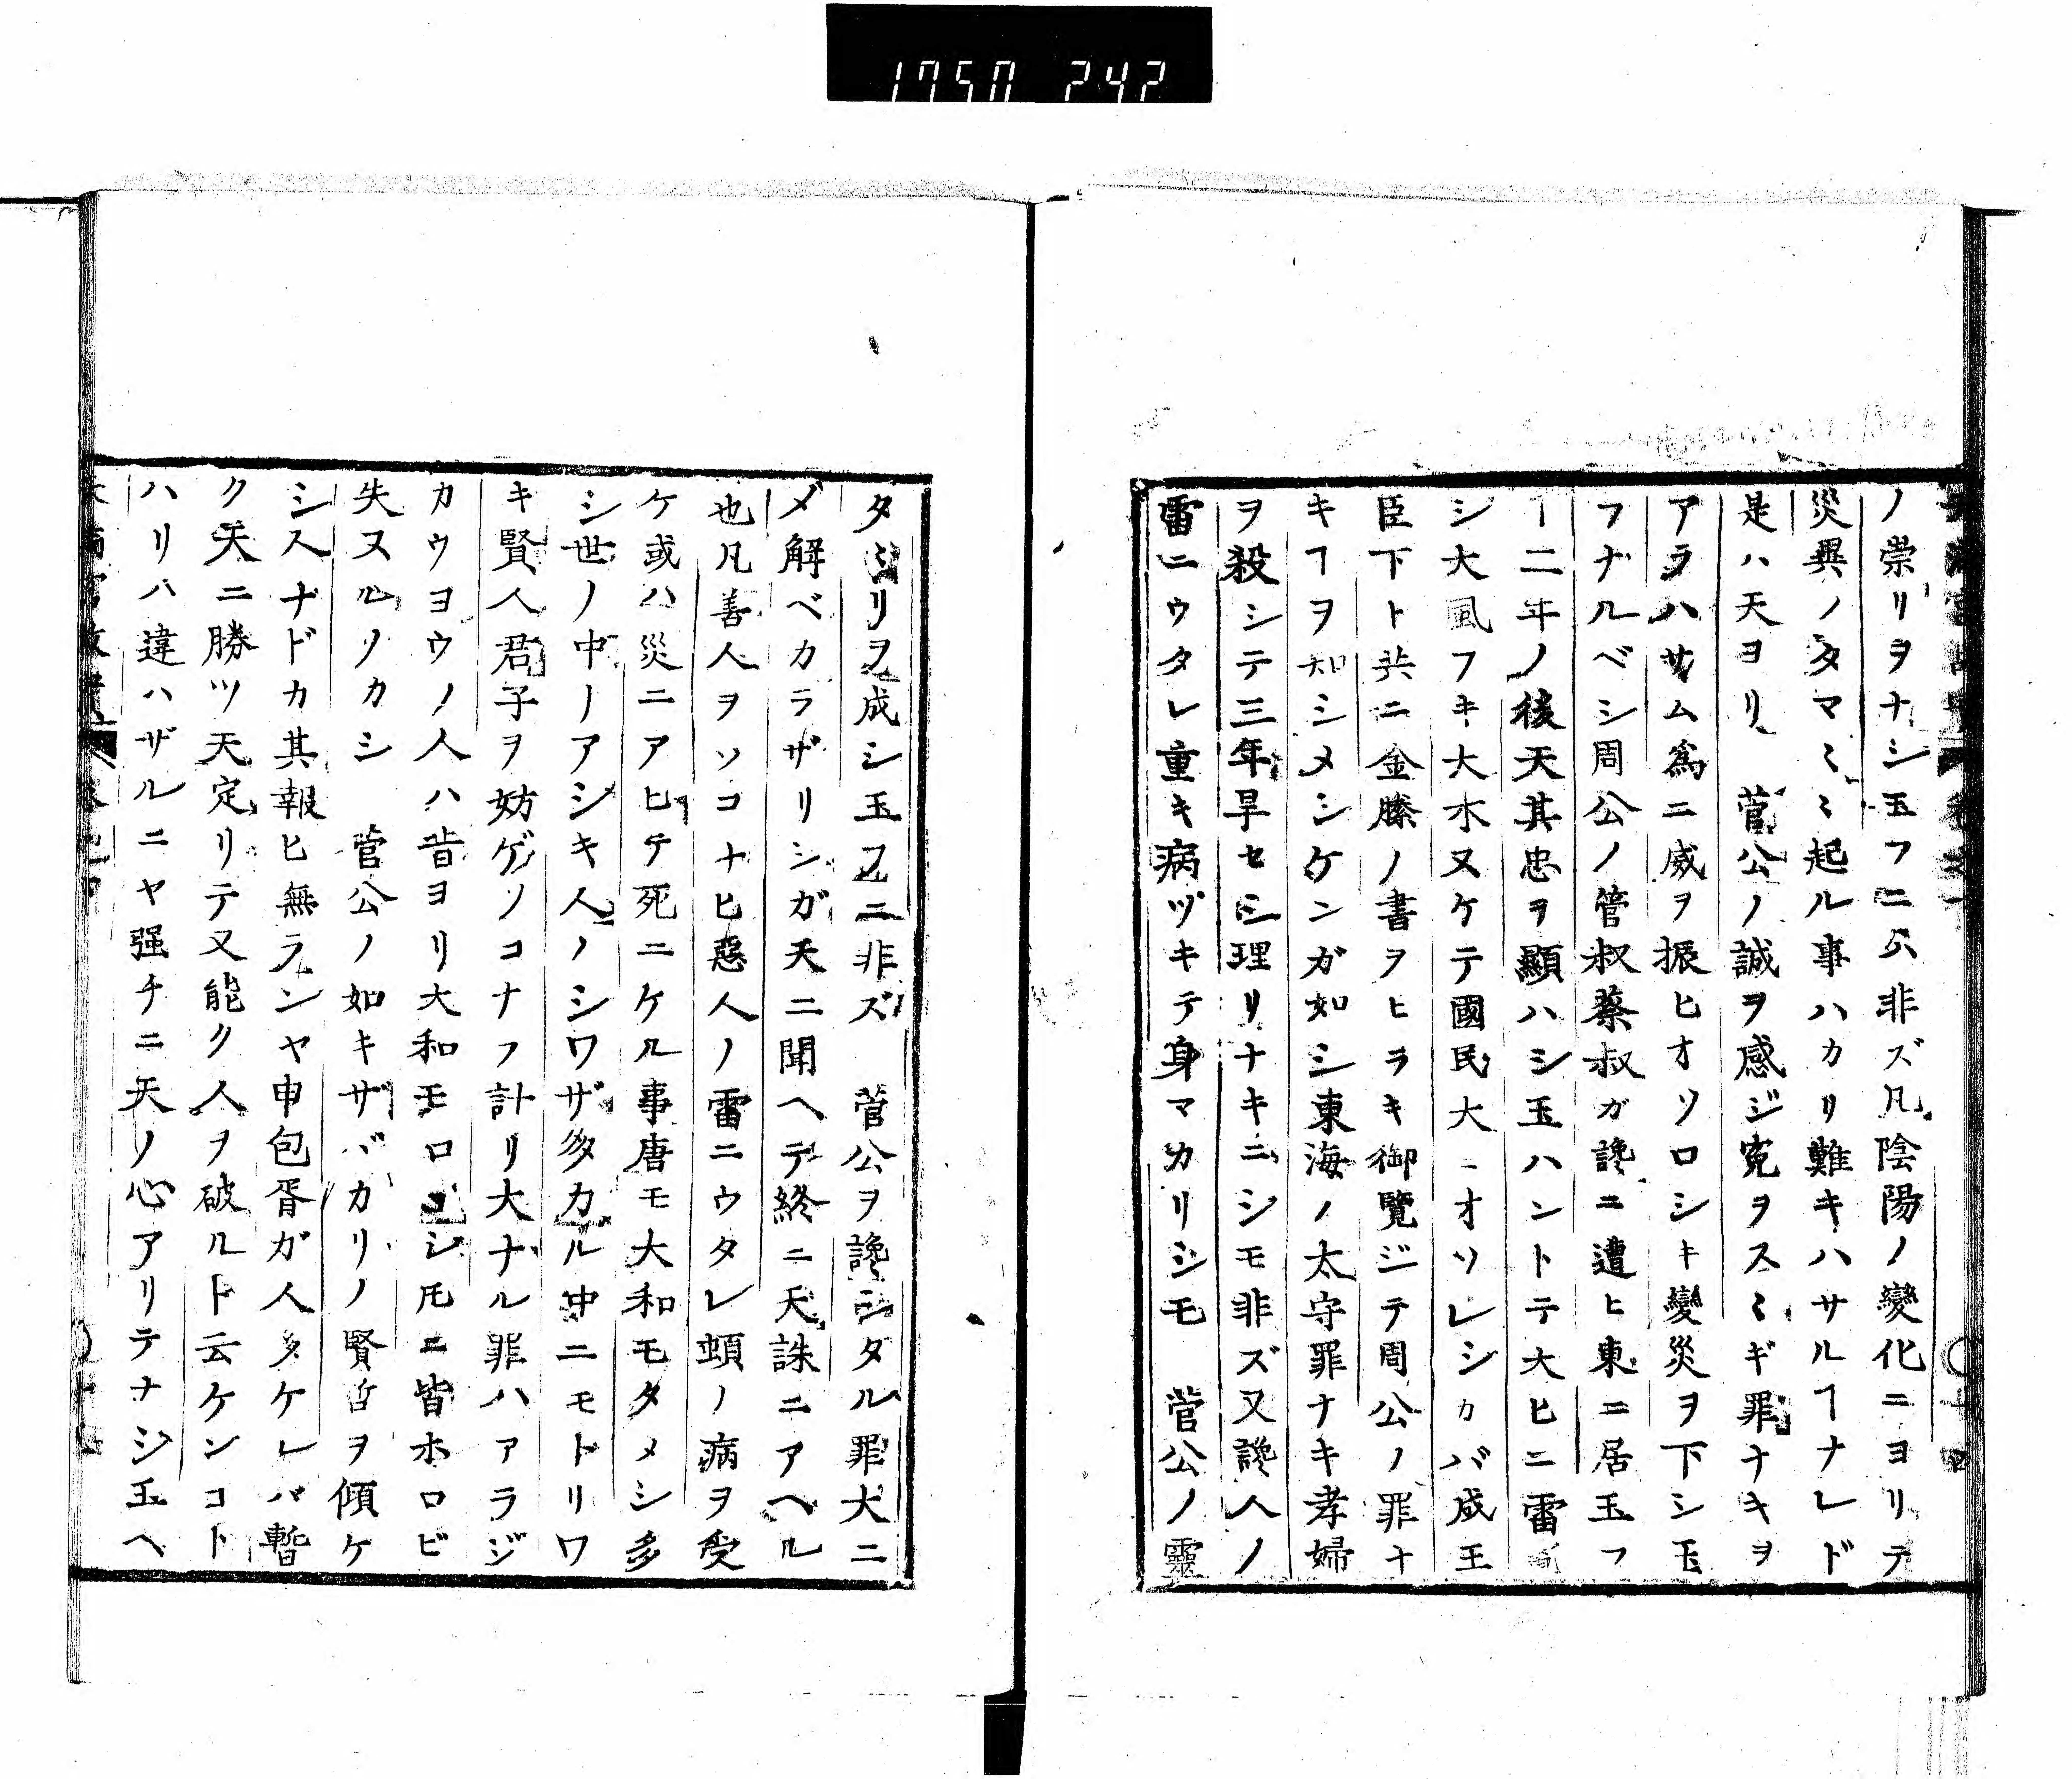 1750 242
ノ祟リヲナシ玉フニ𪜈非ズ凡陰陽ノ變化ニヨリテ
災異ノタマ〱ミ起ル事ハカリ難キハサルヿナレド
是ハ天ヨリ 菅公ノ誠ヲ感ジ寃ヲスヽギ罪ナキヲ
アラハサム爲ニ威ヲ振ヒオソロシキ變災ヲ下シ玉
フナルベシ周公ノ管叔蔡叔ガ讒ニ遭ヒ東ニ居玉フ
ヿ二年ノ後天其忠ヲ顯ハシ玉ハントテ大ヒニ雷
シ大風フキ大木ヌケテ國民大ニオソレシカバ成王
臣下ト共ニ金縢ノ書ヲヒラキ御覽ジテ周公ノ罪ナ
キヿヲ知シメシケンガ如シ東海ノ太守罪ナキ孝婦
ヲ殺シテ三年旱セシ理リナキニシモ非ズ又讒人ノ
雷ニウタレ重キ病ヅキテ身マカリシモ 菅公ノ靈
タヽリヲ成シ玉フニ非ズ 菅公ヲ讒シタル罪大ニ
メ解ベカラザリシガ天ニ聞ヘテ終ニ天誅ニアヘル
也凡善人ヲソコナヒ惡人ノ雷ニウタレ頓ノ病ヲ受
ケ或ハ災ニアヒテ死ニケル事唐モ大和モタメシ多
シ世ノ中ノアシキ人ノシワザ多カル中ニモトリワ
キ賢人君子ヲ妨ゲソコナフ計リ大ナル罪ハアラジ
カウヨウノ人ハ昔ヨリ大和モロコシ𪜈ニ皆ホロビ
失ヌルゾカシ 菅公ノ如キサバカリノ賢哲ヲ傾ケ
シスナドカ其報ヒ無ランヤ申包胥ガ人多ケレバ暫
ク天ニ勝ツ天定リテ又能ク人ヲ破ルト云ケンコト
ハリハ違ハザルニヤ强チニ天ノ心アリテナシ玉ヘ